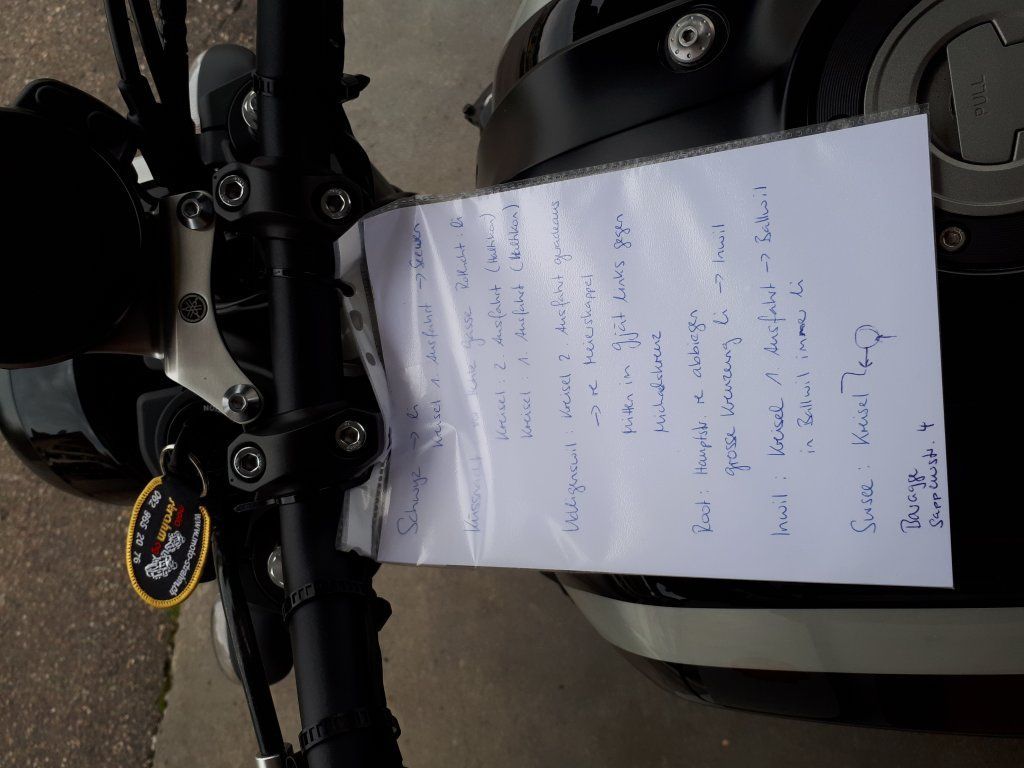 Schwyz → li
Kreisel 1. Ausfahrt → Seewen
Küssnacht gasse Rotlicht: li
Kreisel: 2. Ausfahrt (Haltikon)
Kreisel: 1. Ausfahrt (Haltikon)
Udligenswil: Kreisel 2. Ausfahrt gradeaus
→ re Meierskappel
Mitten in gjät links gegen
Michaelskreuz
Root: Hauptstr. re abbiegen
grosse Kreuzung li → Inwil
Inwil: Kreisel 1 Ausfahrt → Ballwil
in Ballwil immer li
Sursee: Kreisel
Baragge
Sappeurstr. 4
www.moto-strahm.ch
moto
strahm
062 965 20 76